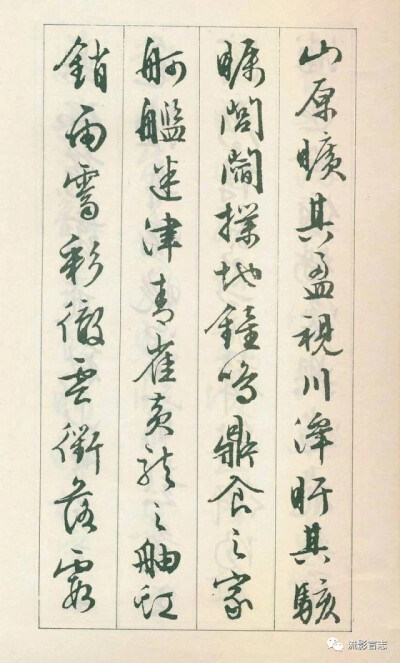 山原曠其盈視川澤盱其駭
矚閭閻撲地鐘鳴鼎食之家
舸艦迷津青雀黃龍之舳虹
銷雨霽彩徹雲衢落霞
流影言志